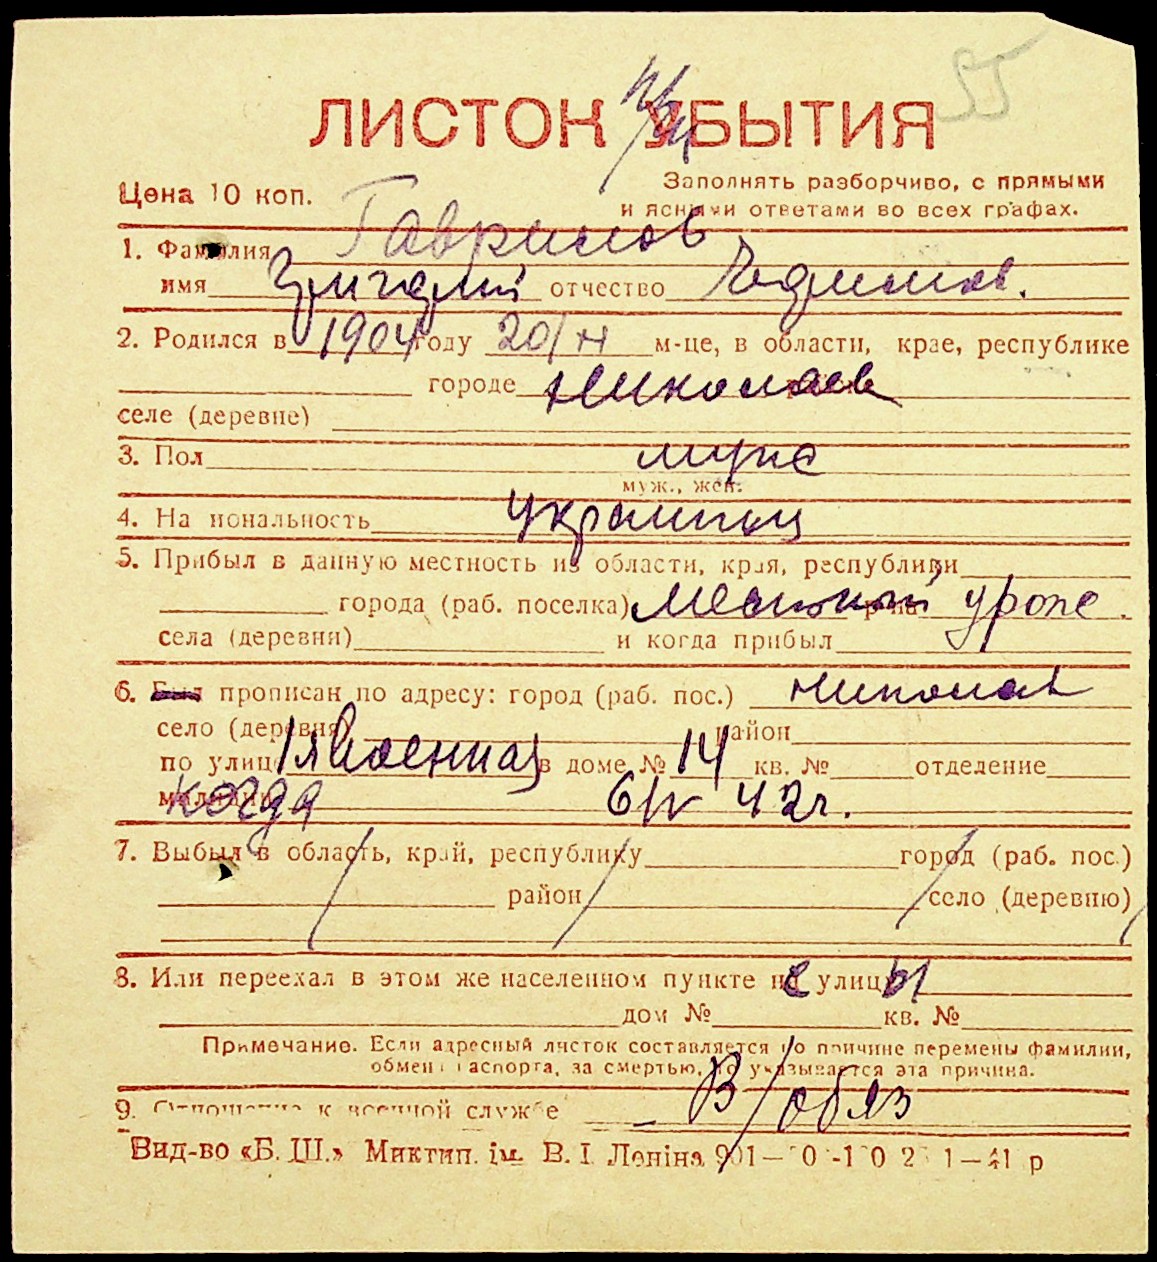 ЛИСТОК УБЫТИЯ
Цена 10 коп.
Заполнять разборчиво, с прямыми
и ясными ответами во всех графах.
1. Фамилия Гаврилов
имя Григорий отчество
2. Родился в 1904 году 20/ м-це, в области, крае, республике
городе Николаев
селе (деревне)
3. Пол муж
муж., жен.
4. Национальность Украинец
5. Прибыл в данную местность из области, края, республики
города (раб. поселка) Местный р-на уроже.
села (деревни) и когда прибыл
6. Был прописан по адресу: город (раб. пос.) Николаев
село (деревня) район
по улице 1я Военная в доме № 14 кв. № отделение
милиции когда 6/IV 42г.
7. Выбыл в область, край, республику город (раб. пос.)
район село (деревню)
8. Или переехал в этом же населенном пункте с улицы
дом № кв. №
Примечание. Если адресный листок составляется по причине перемены фамилии,
обмена паспорта, за смертью, то указывается эта причина.
9. Отношение к военной службе В/обяз
Вид-во «Б. Ш.» Миктип. ім. В. І. Леніна